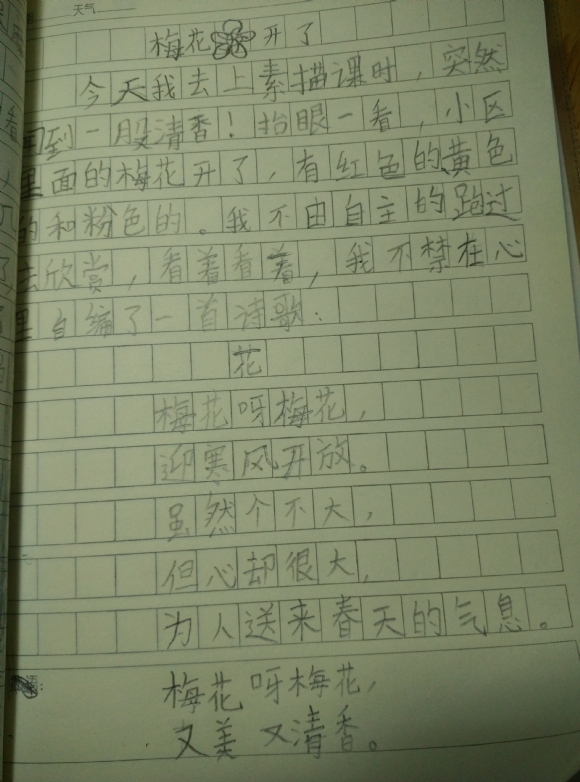 天气
梅花开了
今天我去上素描课时，突然
闻到一股清香！抬眼一看，小区
里面的梅花开了，有红色的、黄色
的和粉色的。我不由自主的跑过
去欣赏，看着看着，我不禁在心
里自编了一首诗歌：
花
梅花呀梅花，
迎寒风开放。
虽然个不大，
但心却很大，
为人送来春天的气息。
梅花呀梅花，
又美又清香。